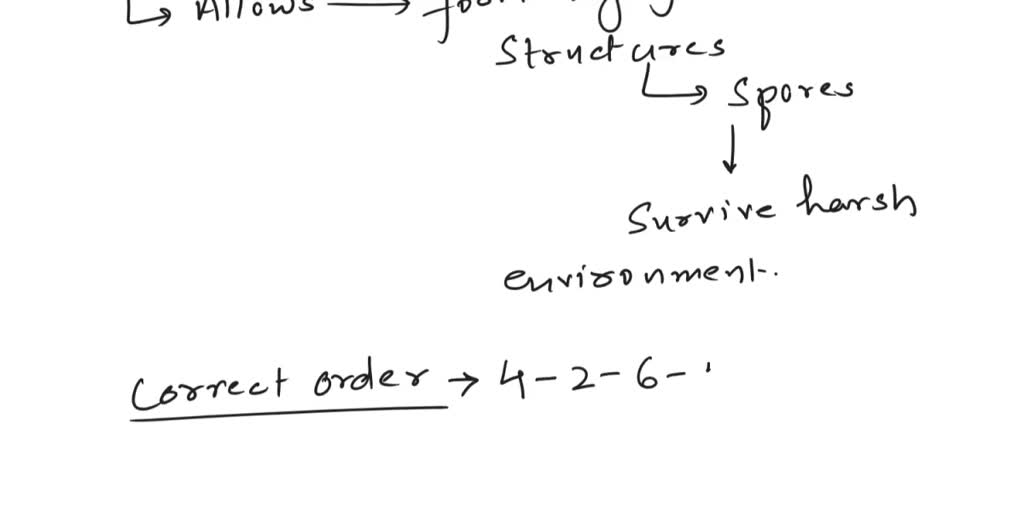 ↳ Allows →
Structures
↳ Spores
↓
Survive harsh
environment.
Correct order → 4-2-6-